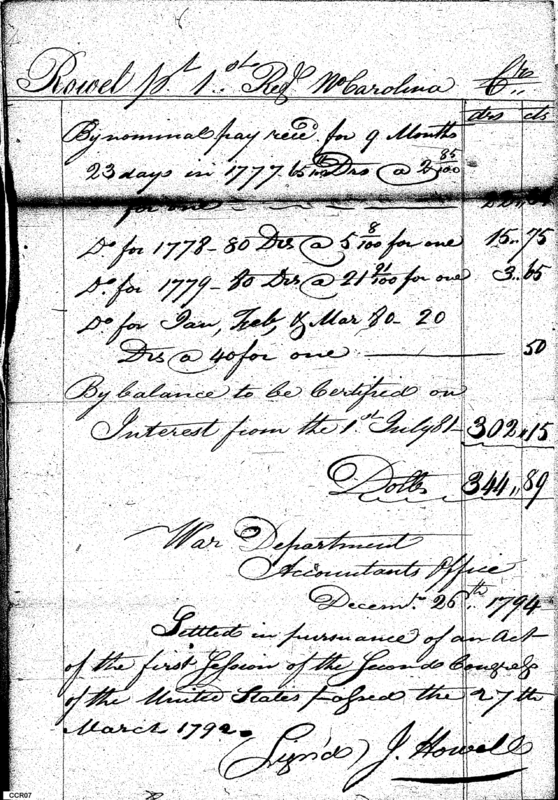 Rowel pt 1st Regt No Carolina Crs
drs cts
By nominal pay recd. for 9 Months
23 days in 1777. 65 Drs @ 2 85/100
for one 22,,84
Do for 1778 - 80 Drs @ 5 8/100 for one 15,,75
Do for 1779 - 80 Drs @ 21 91/100 for one 3,,65
Do for Jan, Feb, & Mar 80 - 20
Drs @ 40 for one 50
By balance to be Certified on
Interest from the 1st July 81 - 302,,15
Dolls 344,,89
War Department
Accountants Office
Decemr. 26th 1794
Settled in pursuance of an Act
of the first Session of the Second Congress
of the United States passed the 27th
March 1792.
(Sign'd) J. Howell
CCR07